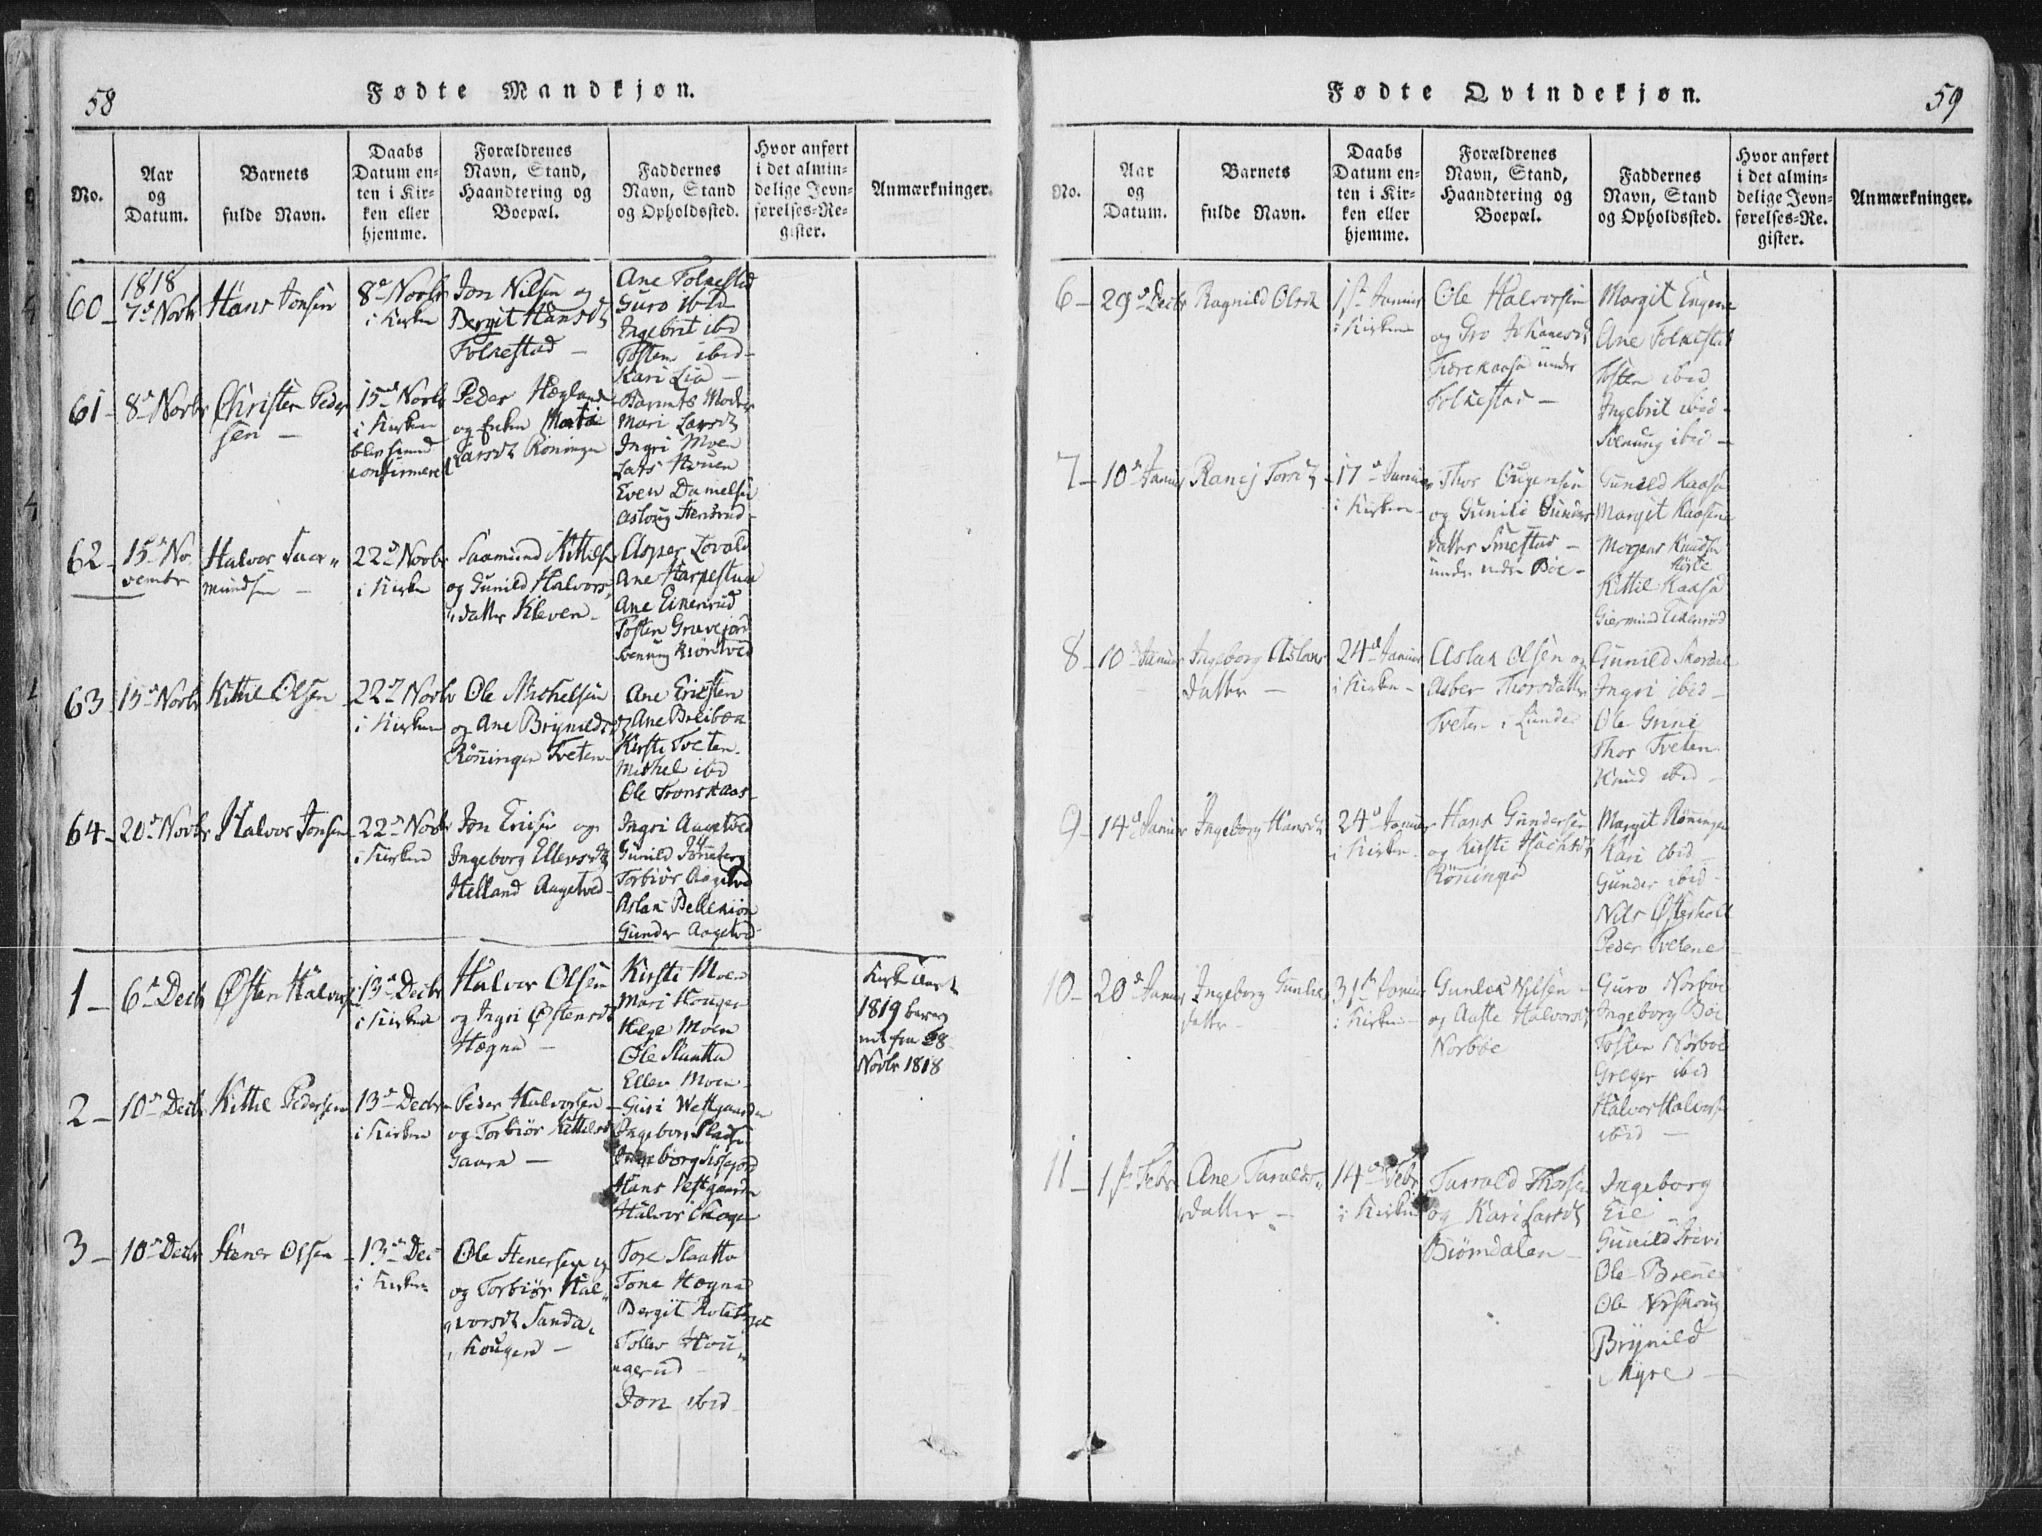 58
Fødte Mandkjøn.
No.
Aar
og
Datum.
Barnets
fulde Navn.
Daabs
Datum en-
ten i Kir-
ken eller
hjemme.
Forældrenes
Navn, Stand,
Haandtering og
Boepæl.
Faddernes
Navn, Stand
og Opholdssted.
Hvor anført
i det almin-
delige Jevn-
førelses-Re-
gister.
Anmærkninger.
60
1818
7de Novbr
Hans Jonsen
8de Novbr
i Kirken
Jon Nilsen og
Bergit Hansdt
Folkestad
Ane Folkestad
Guro ibid
Ingebrit ibid
Tosten ibid
Kari Lia
61
8de Novbr
Christen Peder
sen
15de Novbr
i Kirken
blev
confirmeret
Peder Hægland
og Enken
Larsdt Røningen
Barnets Moder
Mari Larsdt
Ingri Moen
Lars
Even Danielsen
Asloug
62
15de No
vembr
Halvor Saa
mundsen
22de Novbr
i Kirken
Saamund Kittilsen
og Gunild Halvors
datter Kleven
Asper Lovald
Ane Harpestua
Ane Eikerud
Tosten Gravejord
Svenung
63
15de Novbr
Kittil Olsen
22de Novbr
i Kirken
Ole Michelsen
og Ane Brynildsdt
Røningen Tveten
Ane Ericsten
Ane Breiboa
Kirsti Tveten
Michel ibid
Ole
64
20de Novbr
Halvor Jonsen
22de Novbr
i Kirken
Jon Ericsen og
Ingeborg Ellevsdt
Helland Aagetved
Ingri Aagetved
Gunild
Torbiør Aagetved
Aslak
Gunder Aagetved
1
6te Decbr
Østen Halvorsen
13de Decbr
i Kirken
Halvor Olsen
og Ingri Østensdt
Hægna
Kirsti Moen
Mari Hougen
Helge Moen
Ole Slaatta
Ellev Moen
1819
28
Novbr 1818
2
10de Decbr
Kittil Pedersen
13de Decbr
i Kirken
Peder Halvorsen
og Torbiør Kittilsdt
Gaara
Guri Westgaarden
Ingebor
Ingeborg
Hans Vestgaarden
Halvor
3
10de Decbr
Stener Olsen
13de Dec
i Kirken
Ole Stenersen
og Torbiør Hal
vorsdt Sanda
hougen
Tore Slaatta
Tone Hægna
Bergit
Tollev Hou
gerud
Jon ibid
59
Fødte Qvindekjøn.
No.
Aar
og
Datum.
Barnets
fulde Navn.
Daabs
Datum en-
ten i Kir-
ken eller
hjemme.
Forældrenes
Navn, Stand,
Haandtering og
Boepæl.
Faddernes
Navn, Stand
og Opholdssted.
Hvor anført
i det almin-
delige Jevn-
førelses-Re-
gister.
Anmærkninger.
6
29de Decbr
Ragnild Olsdt
1ste Januar
i Kirken
Ole Halvorsen
og Gro Johanesdt
under
Folkestad
Margit
Ane Folkestad
Tosten ibid
Ingebrit ibid
Svenung ibid
7
10de Januar
Ranej Torsdt
17de Januar
i Kirken
Thor
og Gunild Gunders
datter Smestad
under Bøe
Gunild Kaasa
Margit Kaasene
Mogens Knudsen
Kittil Kaasa
Giermund Eikerød
8
10de Januar
Ingeborg Aslaks
datter
24de Januar
i Kirken
Aslak Olsen og
Asber Thorsdatter
Tveten i Lunde
Gunild
Ingri ibid
Ole Grini
Thor Tveten
Knud ibid
9
14de Januar
Ingeborg Hansdt
24de Januar
i Kirken
Hans Gundersen
og Kirsti Isachsdt
Røningen
Margit Røningen
Kari ibid
Gunder ibid
Nils Østerholt
Peder Tvetene
10
20de Januar
Ingeborg Gunleks
datter
31te Januar
i Kirken
Gunlek Nilsen
og Aaste Halvorsdt
Norbøe
Guro Norbøe
Ingeborg Bøe
Tosten Norbøe
Greger ibid
Halvor Halvorsen
ibid
11
1ste Febr
Ane Taralds
datter
14de Febr
i Kirken
Tarrald Thorsen
og Kari Larsdt
Biørndalen
Ingeborg
Eie
Gunild
Ole
Ole Norskoug
Brynild
Myre